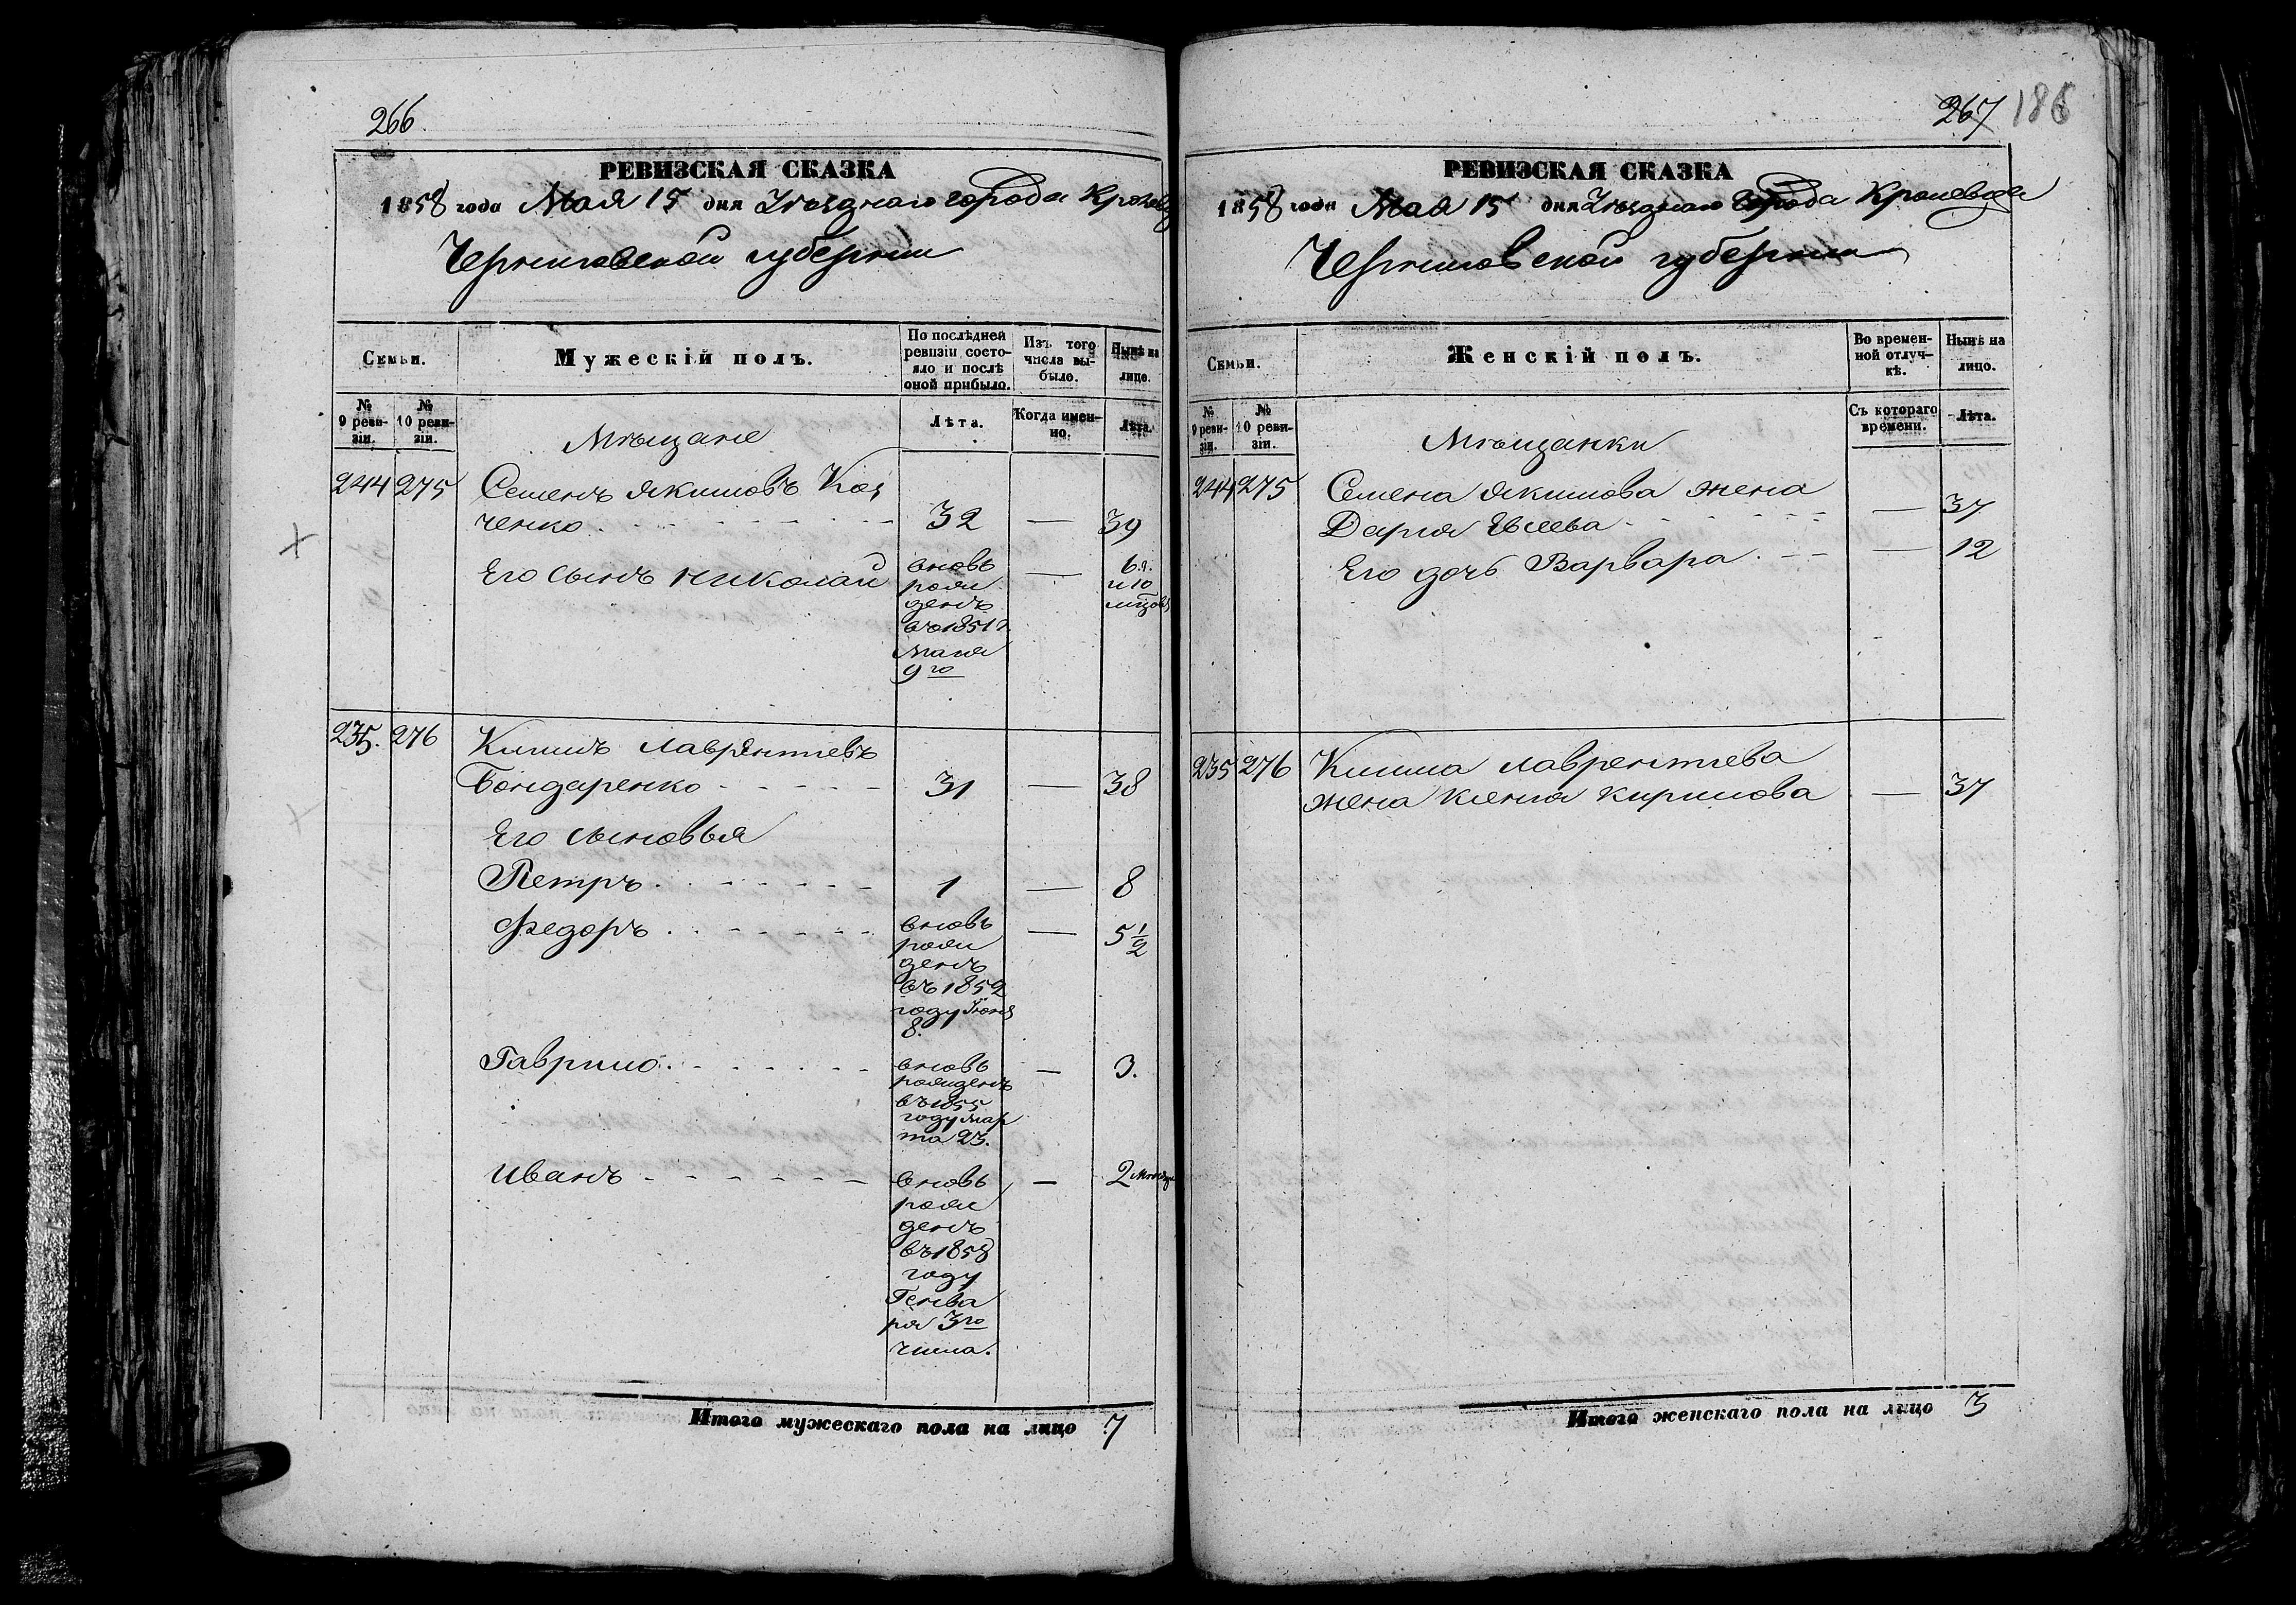 266.
РЕВИЗСКАЯ СКАЗКА
1858 года Мая 15 дня Уезднаго города Кролевца
Черниговской губернии
Семьи.
Мужескій полъ.
По послѣдней ревизіи состояло и послѣ оной прибыло.
Изъ того числа выбыло.
Нынѣ на лице.
№ 9 ревизіи.
№ 10 ревизіи.
Мѣщане
Лѣта.
Когда именно.
Лѣта.
244 275 Семенъ Якимовъ
ченко. 32 — 39
Его сынъ Николай вновь рожденъ въ 1851 г. Маия 9го — 6 л. и 10 мцовъ
235. 276 Климъ Лаврентиевъ
Бондаренко 31 — 38
Его сыновья
Петръ. 1 — 8
Федоръ. вновь рожденъ въ 1852 году Іюня 8. — 5 1/2
Гаврило. вновь рожденъ въ 1855 году Марта 23. — 3.
Иванъ вновь рожденъ въ 1858 году Генваря 3го числа. — 2 месяца
Итого мужескаго пола на лицо 7
267 186
РЕВИЗСКАЯ СКАЗКА
1858 года Мая 15 дня Уезднаго города Кролевца
Черниговской губернии
Семьи.
Женскій полъ.
Во временной отлучкѣ.
Нынѣ на лицо.
№ 9 ревизіи.
№ 10 ревизіи.
Мѣщанки
Съ котораго времени.
Лѣта.
244 275 Семена Якимова жена
Дария — 37
Его дочь Варвара. — 12
235 276 Клима Лаврентиева
жена Ксения Кирилова — 37
Итого женскаго пола на лицо 3